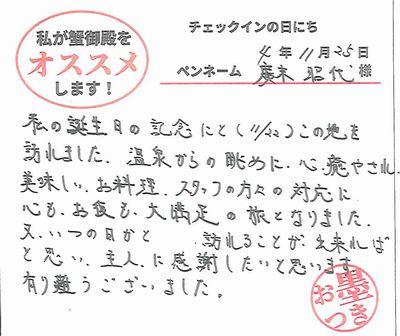 私が蟹御殿を
オススメ
します!
チェックインの日にち
4年11月25日
ペンネーム 廣末 昭代 様
私の誕生日の記念にと(11/22)この地を
訪れました。温泉からの眺めに、心、癒やされ、
美味しい、お料理、スタッフの方々の対応に
心も、お後も、大満足の旅となりました。
又、いつの日かと 訪れることが、出来れば
と思い、主人、に感謝したいと思います。
有り難うございました。
墨
おつき